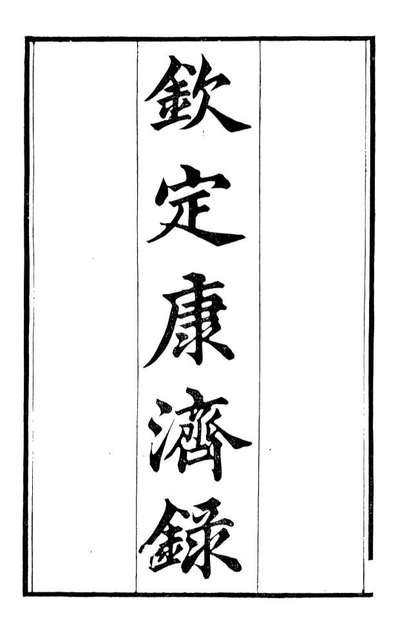 欽定康濟錄